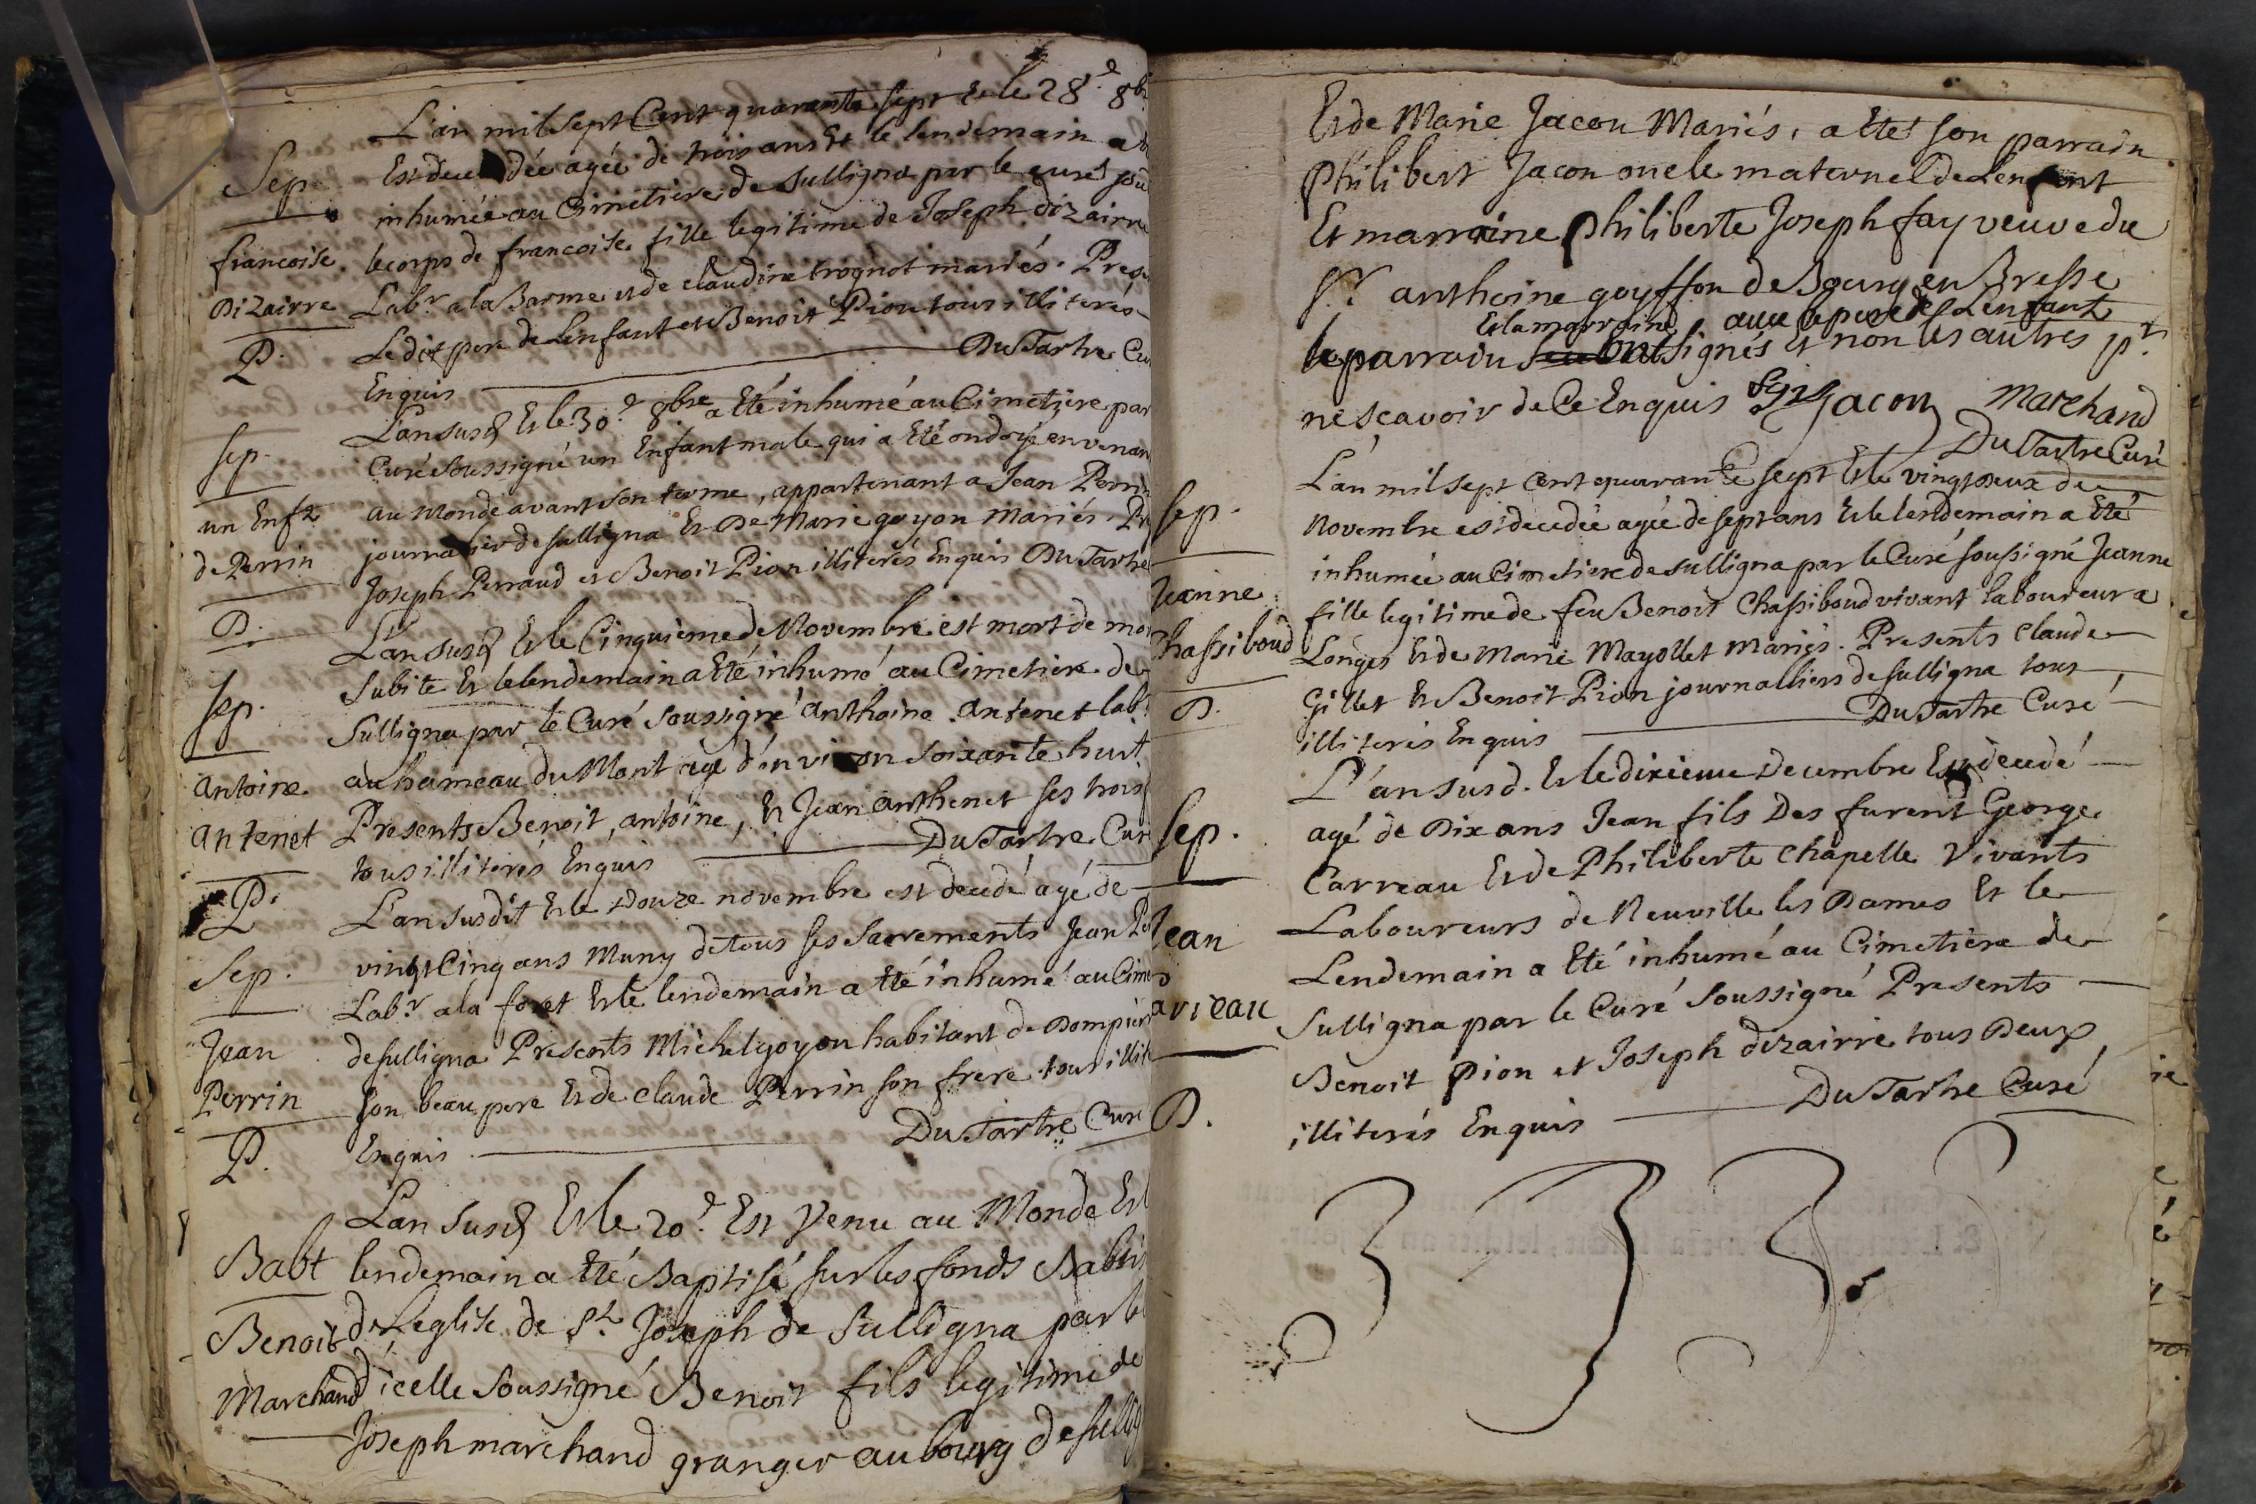 L'an mil sept Cent quarante sept Et le 28.e 8b
Sep.
Est decedée agée de trois ans Et le lendemain a
inhumée au Cimetiere de Sulligna par le curé sou
francoise
le corps de francoise fille legitime de Joseph dizairre
Dizairre
Lab.r a la Barme et de claudine trognot mariés. Pres
P.
Le dit pere de Lenfant et Benoit Pion tous illiterés
Enquis DuTartre Cu
sep.
L'an susd Et le 30.e 8bre a Eté inhumé au Cimetiere par
Curé Soussigné un Enfant male qui a Eté ondoyé en venan
un Enft
au Monde avant son terme, appartenant a Jean Perrin
de Perrin
journalier de sulligna Et De Marie goyon Mariés. Pr
Joseph Perraud et Benoit Pion illiterés Enquis DuTartre
P.
L'an susd Et le Cinquieme de Novembre est mort de mor
sep.
Subite Et le lendemain a Eté inhumé au Cimetiere de
Sulligna par le Curé Soussigné anthoine antenet lab.r
antoine
au hameau du Mont agé d'environ soixante huit
antenet
Presents Benoit, antoine, Et Jean anthenet ses trois
tous illiterés Enquis DuTartre Curé
P.
L'an susdit Et le Douze novembre est decedé agé de
Sep.
vingt Cinq ans Muny de tous ses Sacrements Jean Per
Lab.r a la foret Et le lendemain a Eté inhumé au Cime
Jean
de sulligna Presents Michel goyon habitant de Dompier
Perrin
son beau pere Et de claude Perrin son frere tous illite
P.
Enquis DuTartre Curé
L'an susd Et le 20.e Est Venu au Monde Et l
Babt
lendemain a Eté Baptisé sur les fonds Babtis
de Leglise de St. Joseph de Sulligna par le
Benoit
d'icelle Soussigné Benoit fils legitime de
Marchand
Joseph marchand granger au bourg de sullig
Et de Marie Jacon Mariés, a Eté son parrain
Philibert Jacon oncle maternel de Lenfant
Et marraine Philiberte Joseph fay veuve du
Sr. anthoine goyffon de Bourg en Bresse
Et la marraine, avec le pere de Lenfant
le parrain ont signés Et non les autres pr.
ne scavoir de Ce Enquis Jacon Marchand
DuTartre Curé
L'an mil sept Cent quarante sept Et le vingt deux de
sep.
Novembre est decedée agée de sept ans Et le lendemain a Eté
inhumée au Cimetiere de sulligna par le Curé soussigné Jeanne
Jeanne
fille legitime de feu Benoit Chassiboud vivant laboureur a
hassiboud
Longes Et de Marie Mayollet Mariés. Presents Claude
Gillet Et Benoit Pion journalliers de sulligna tous
P.
illiterés Enquis DuTartre Curé
L'an susd. Et le dixieme Decembre Est decedé
sep.
agé de Dix ans Jean fils Des furent George
Carreau Et de Philiberte Chapelle Vivants
Jean
Laboureurs de Neuville les Dames Et le
Lendemain a Eté inhumé au Cimetiere de
arreau
Sulligna par le Curé Soussigné Presents
Benoit Pion et Joseph dizairre tous Deux
P.
illiterés Enquis DuTartre Curé